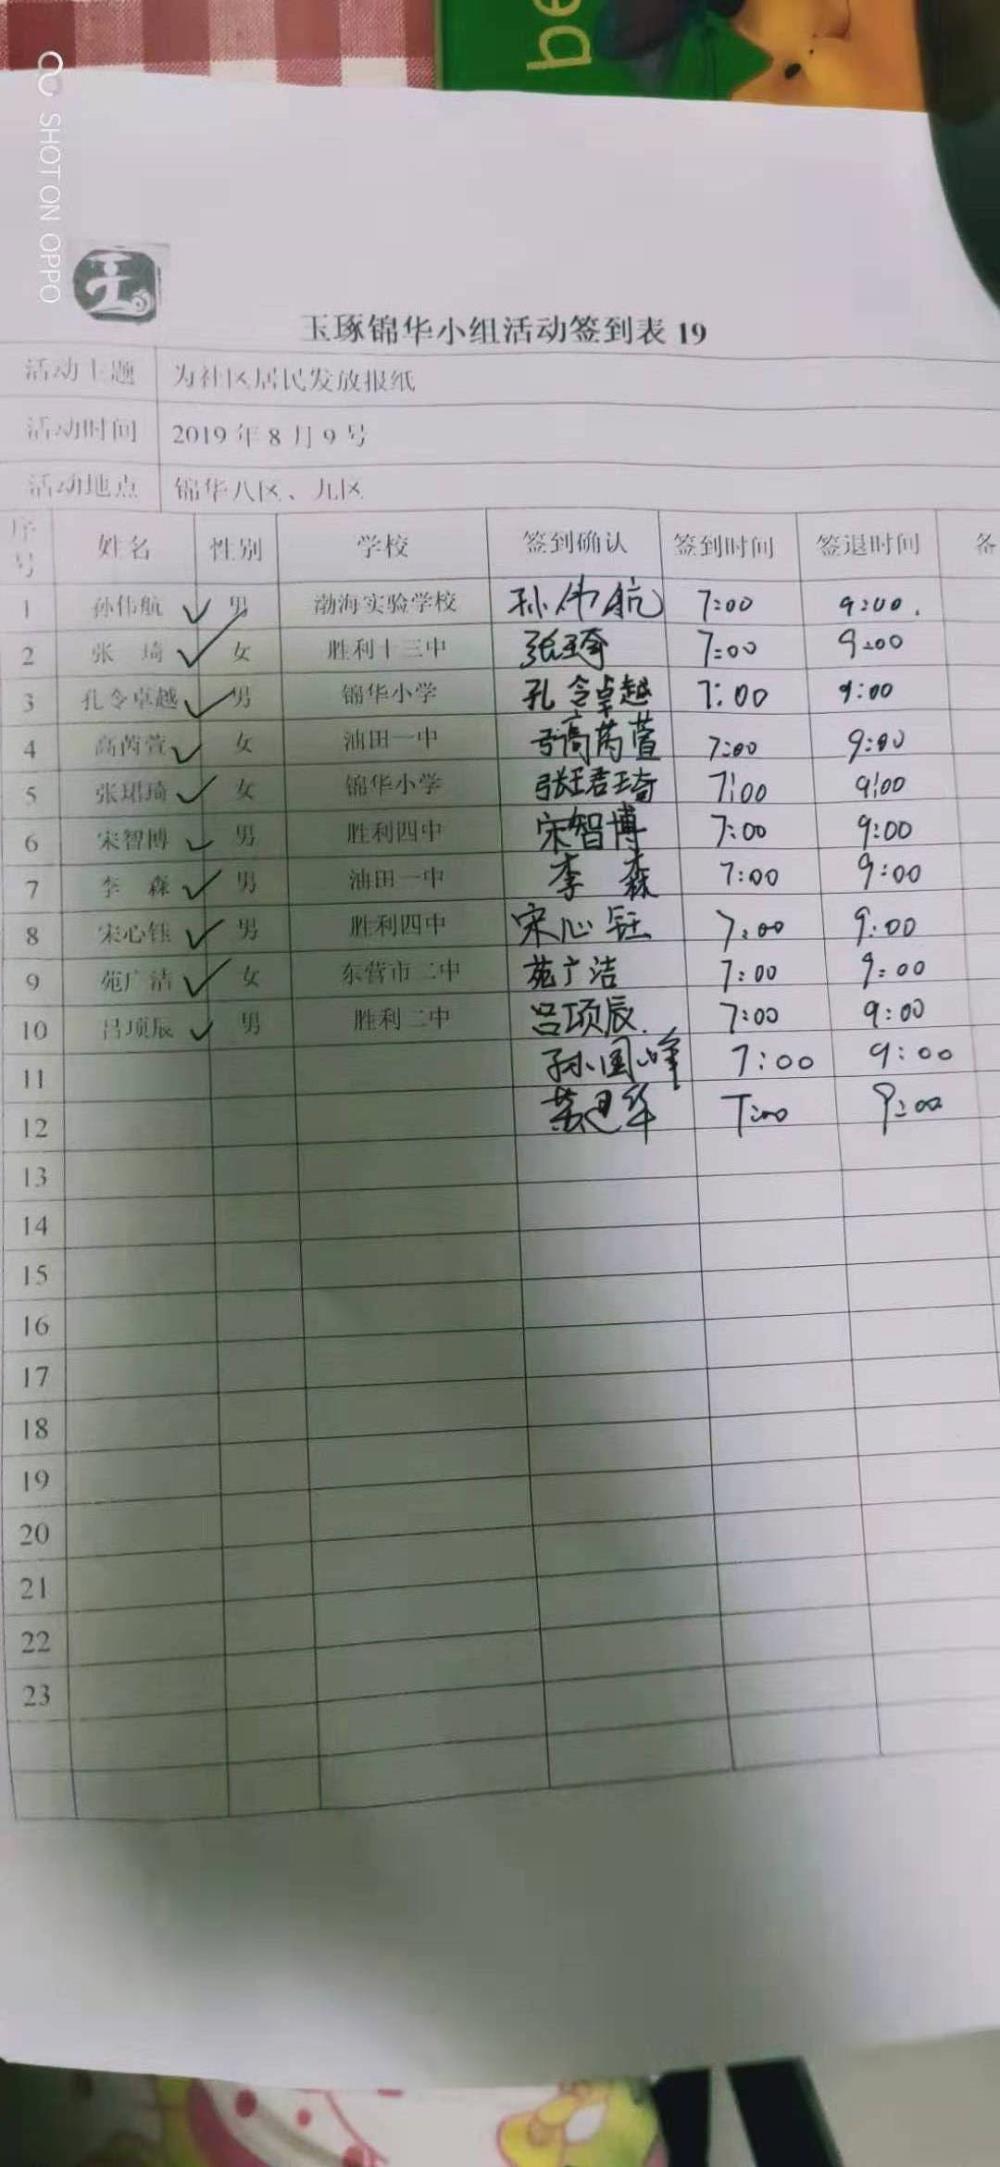 eq
SHOT ON OPPO
玉琢锦华小组活动签到表 19
活动主题 为社区居民发放报纸
活动时间 2019 年 8 月 9 号
活动地点 锦华八区、九区
序号 姓名 性别 学校 签到确认 签到时间 签退时间 备
1 孙伟航 ✓ 男 渤海实验学校 孙伟航 7:00 9:00.
2 张 琦 ✓ 女 胜利十三中 张琦 7:00 9:00
3 孔令卓越 ✓ 男 锦华小学 孔令卓越 7:00 9:00
4 高芮萱 ✓ 女 油田一中 高芮萱 7:00 9:00
5 张珺琦 ✓ 女 锦华小学 张珺琦 7:00 9:00
6 宋智博 ✓ 男 胜利四中 宋智博 7:00 9:00
7 李 森 ✓ 男 油田一中 李 森 7:00 9:00
8 宋心钰 ✓ 男 胜利四中 宋心钰 7:00 9:00
9 苑广洁 ✓ 女 东营市二中 苑广洁 7:00 9:00
10 吕项辰 ✓ 男 胜利二中 吕项辰. 7:00 9:00
11 孙国峰 7:00 9:00
12 7:00 9:00
13
14
15
16
17
18
19
20
21
22
23